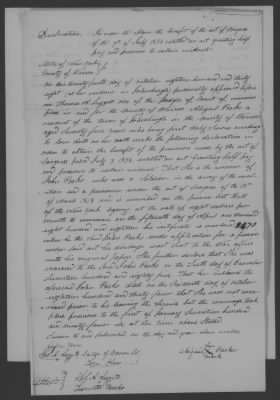 Declaration. In order to obtain the benefit of the act of Congress
of the 7th of July 1838 entitled an act granting half
pay and pensions to certain widows
State of New York
County of Warren
On this twenty fourth day of October eighteen hundred and thirty
eight (at her residence in Johnsburgh) personally appeared before
me Thomas A. Leggett one of the Judges of Court of
pleas in and for the County of Warren Abigail Parks a
resident of the town of Johnsburgh in the County of Warren
aged Seventy five years who being first duly sworn according
to law doth on her oath make the following declaration in
order to obtain the benefit of the provision made by the act of
Congress passed July 7 1838 entitled an act granting half pay
and pensions to certain widows That she is the widow of
John Parks who was a soldier in the army of the revolu
tion and a pensioner under the act of Congress of the 18th
of March 1818 and is inscribed on the pension list Roll
of the New York agency at the rate of eight dollars per
month to commence on the fifteenth day of April one thousand
eight hundred and eighteen his certificate is numbered 2270
when he the said John Parks made application for a pension
under said act his discharge was sent to the War office
with his original papers She further declares that she was
married to the said John Parks on the day of December
Seventeen hundred and eighty five That her husband the
aforesaid John Parks died on the seventh day of October
eighteen hundred and thirty four that she was not mar
ried prior to his leaving the service but the marriage took
place previous to the first of January Seventeen hundred
and ninety four viz at the time above stated
Sworn to and subscribed on the day and year above written
before me
Thos. A. Leggett Judge of Warren Co
Abigail Parks
mark
Attest
Leggett
Parks